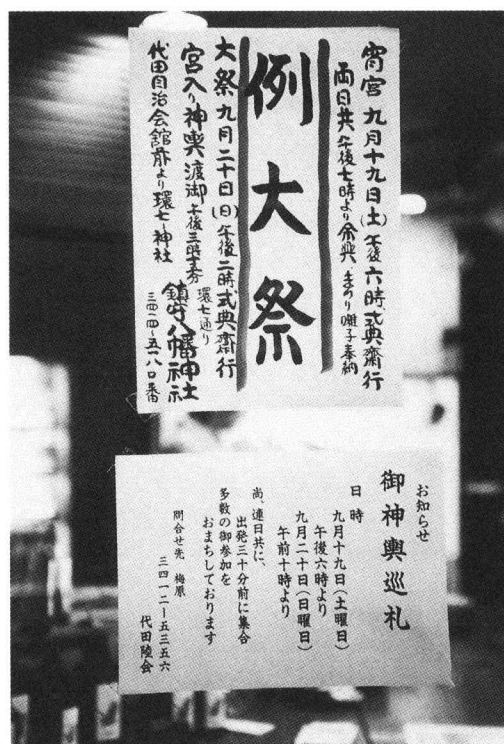 宵宮 九月十九日(土)午後六時式典齋行
両日共午後七時より余興 まつり囃子奉納
例大祭
大祭 九月二十日(日)午後二時式典齋行
宮入り神輿渡御 午後三時 環七通り
代田自治会館前より環七~神社
鎮守八幡神社
お知らせ
御神輿巡礼
日時
九月十九日(土曜日)
午後六時より
九月二十日(日曜日)
午前十時より
尚、連日共に、
出発三十分前に集合
多数の御参加を
おまちしております
問合せ先 梅原
三四一二~五三五六
代田陸会